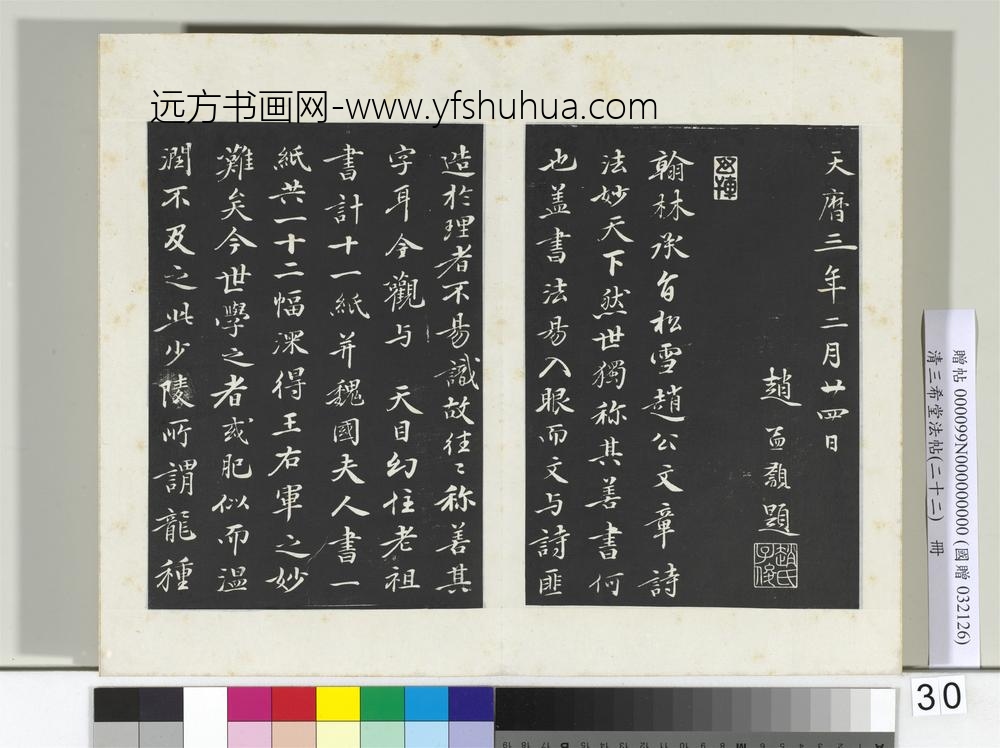 远方书画网-www.yfshuhua.com
天曆三年二月廿四日
趙孟頫題
趙氏子俊
翰林承旨松雪趙公文章詩
法妙天下然世獨称其善書何
也盖書法易入眼而文与詩匪
造於理者不易識故往〻称善其
字耳今觀与 天目幻住老祖
書計十一紙并魏國夫人書一
紙共一十二幅深得王右軍之妙
難矣今世學之者或肥似而温
潤不及之此少陵所謂龍種
贈帖 000099N000000000 (國贈 032126)
清三希堂法帖(二十二) 冊
30